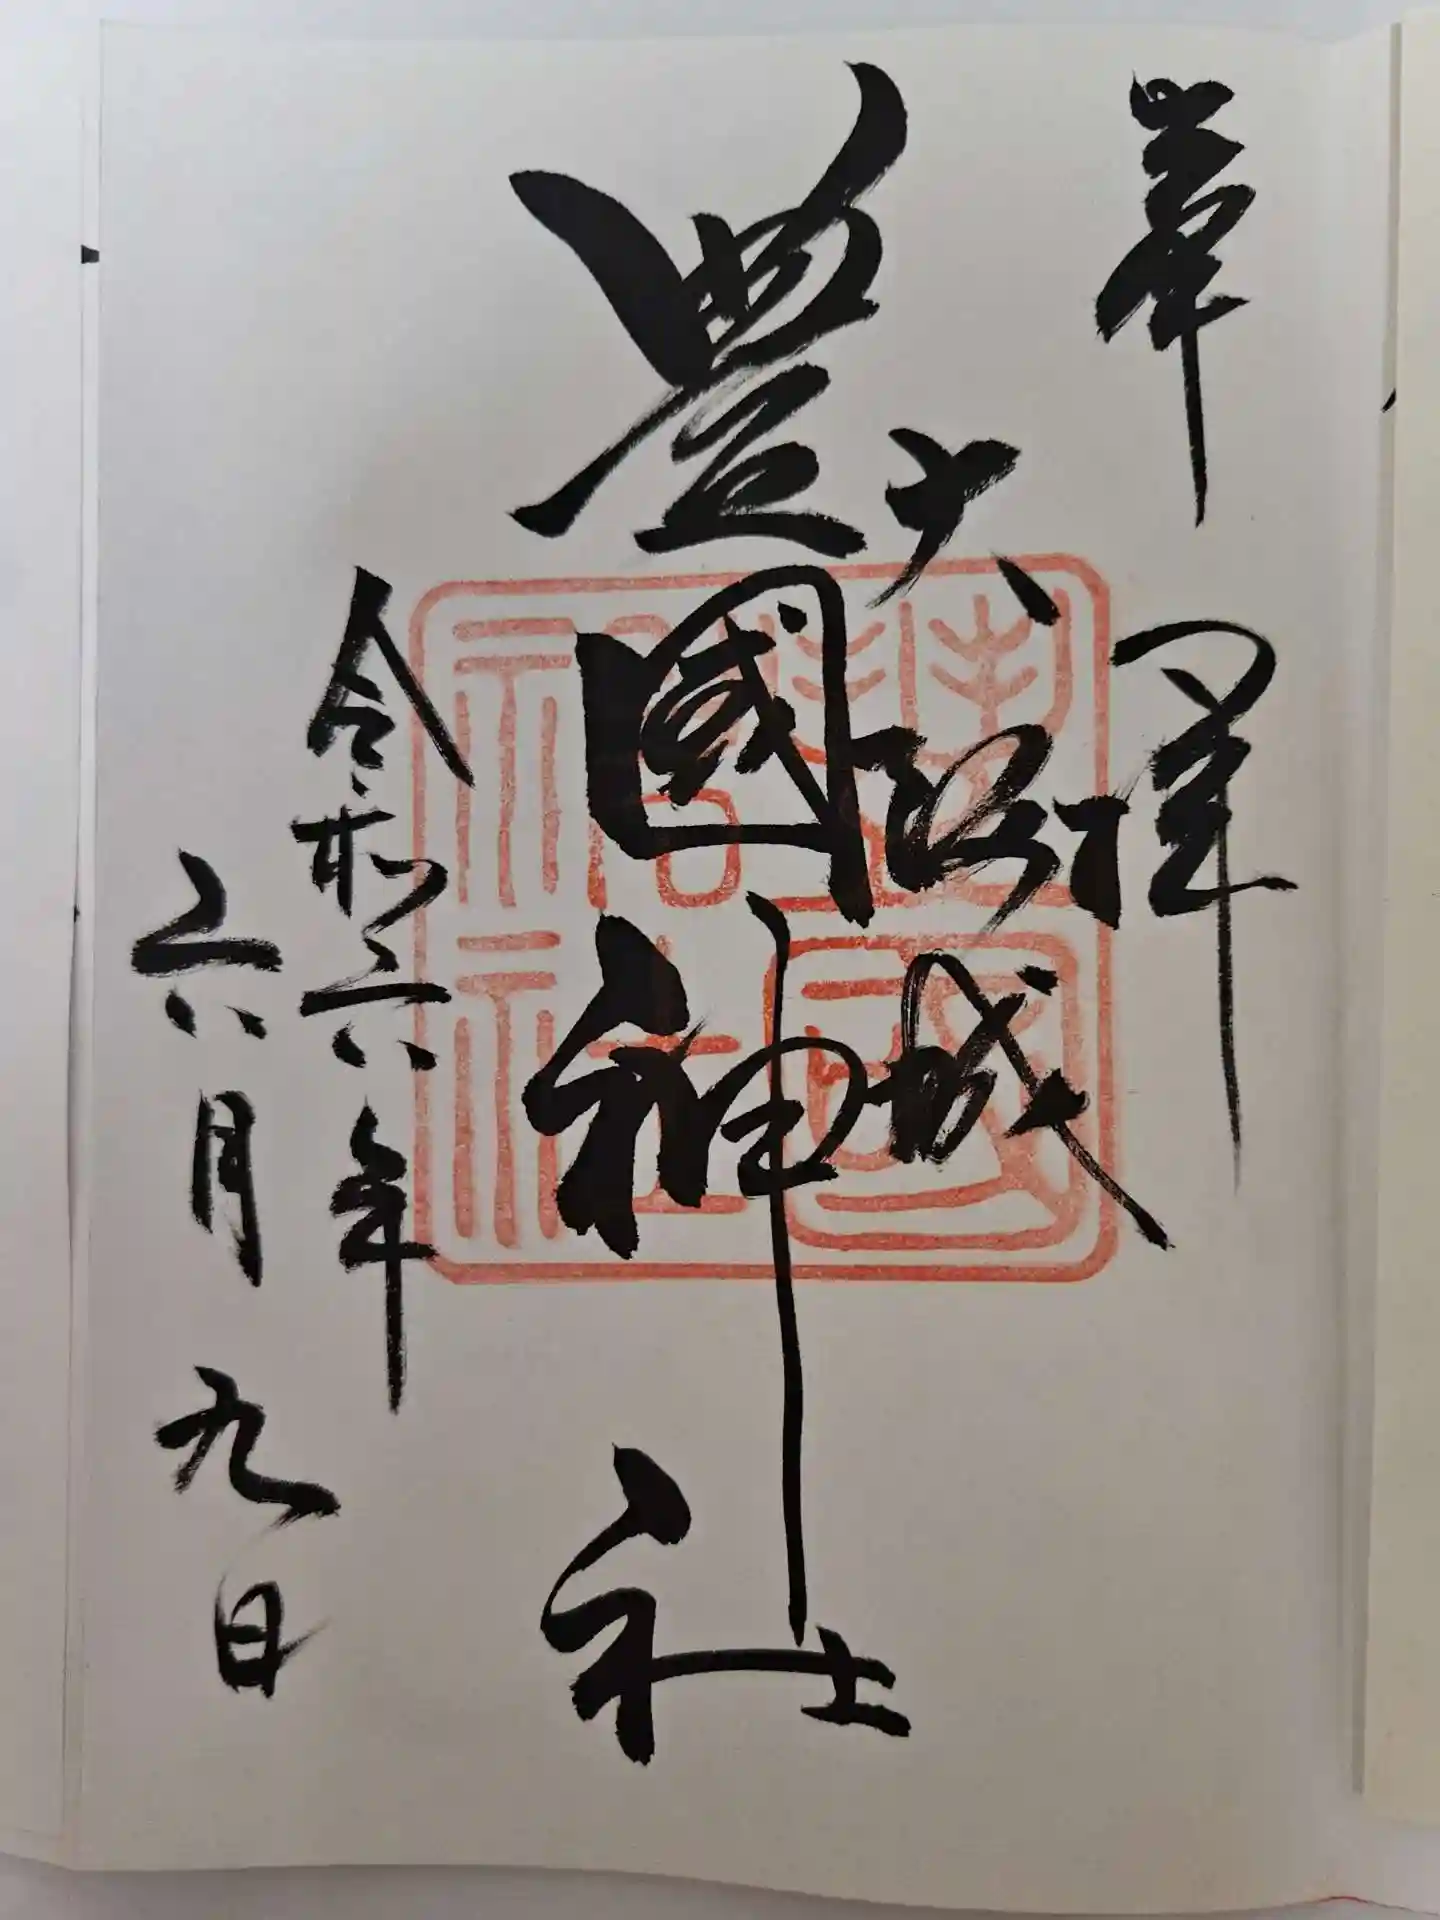 奉拝
大阪城
豊國神社
令和六年
六月九日